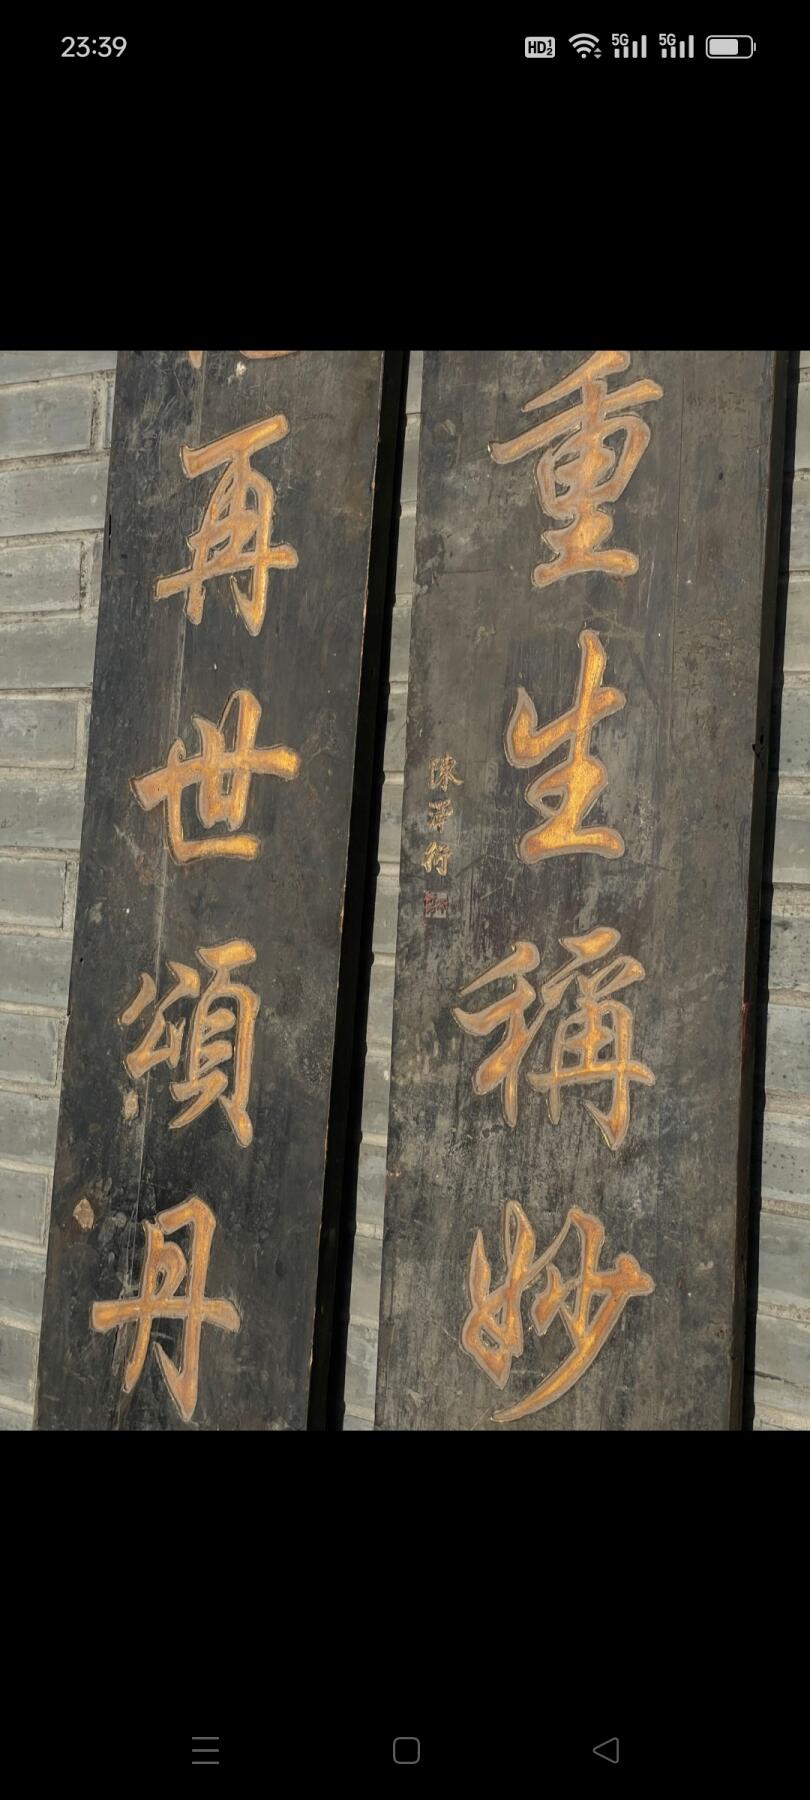 23:39
HD 1 2
5G
5G
重生稱妙
陳澤衍
再世頌丹